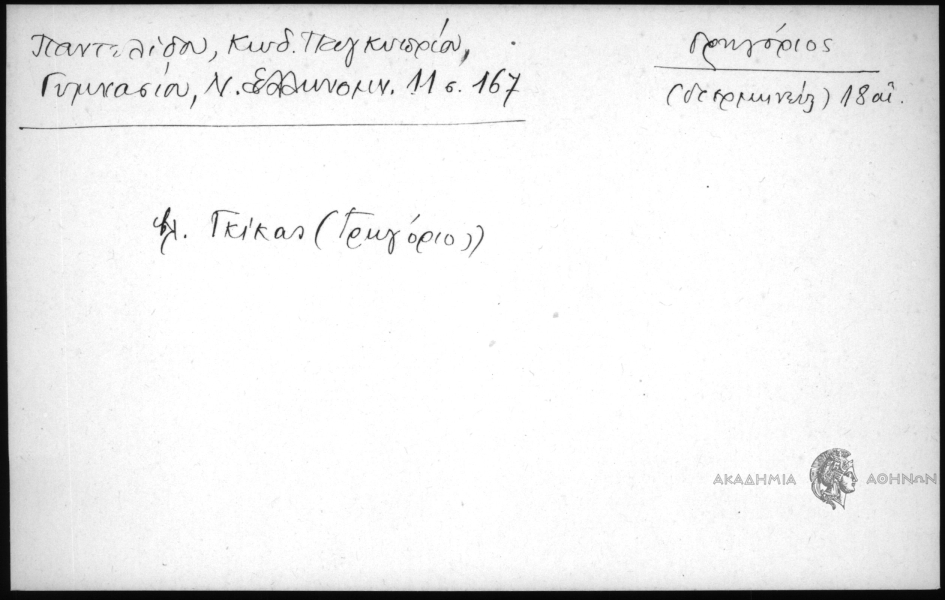 Παντελίδου, Κωδ. Παγκυπρίου,
Γυμνασίου, Ν. Ελληνομν. 11 σ. 167
Γρηγόριος
18 αἰ.
βλ. Γκίκας (Γρηγόριος)
ΑΚΑΔΗΜΙΑ ΑΘΗΝΩΝ